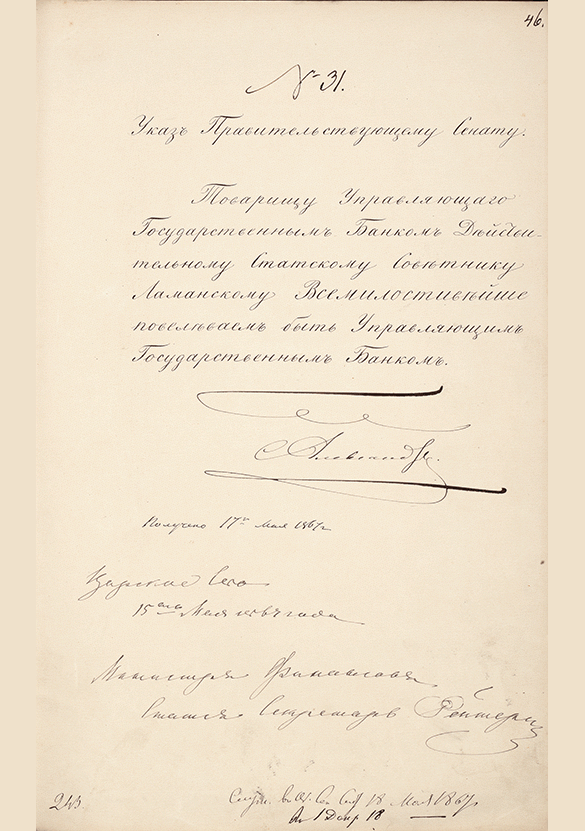 46.
№ 31.
Указъ Правительствующему Сенату.
Товарищу Управляющаго
Государственнымъ Банкомъ Дѣйстви-
тельному Статскому Совѣтнику
Ламанскому Всемилостивѣйше
повелѣваемъ быть Управляющимъ
Государственнымъ Банкомъ.
Александръ.
Получено 17го Мая 1867г
Царское Село
15го Мая 1867 года
Министръ Финансовъ
Статсъ Секретарь Рейтернъ
243
18 Мая 1867
18